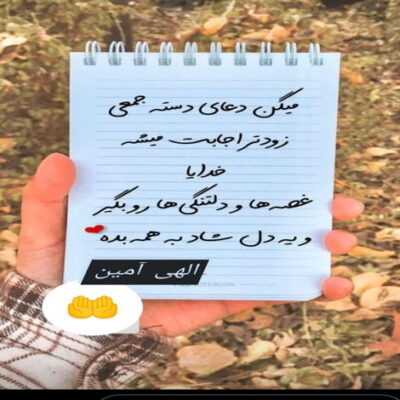 میگن دعای دسته جمعی
زودتر اجابت میشه
خدایا
غصه ها و دلتنگی ها رو بگیر
و یه دل شاد به همه بده
الهی آمین